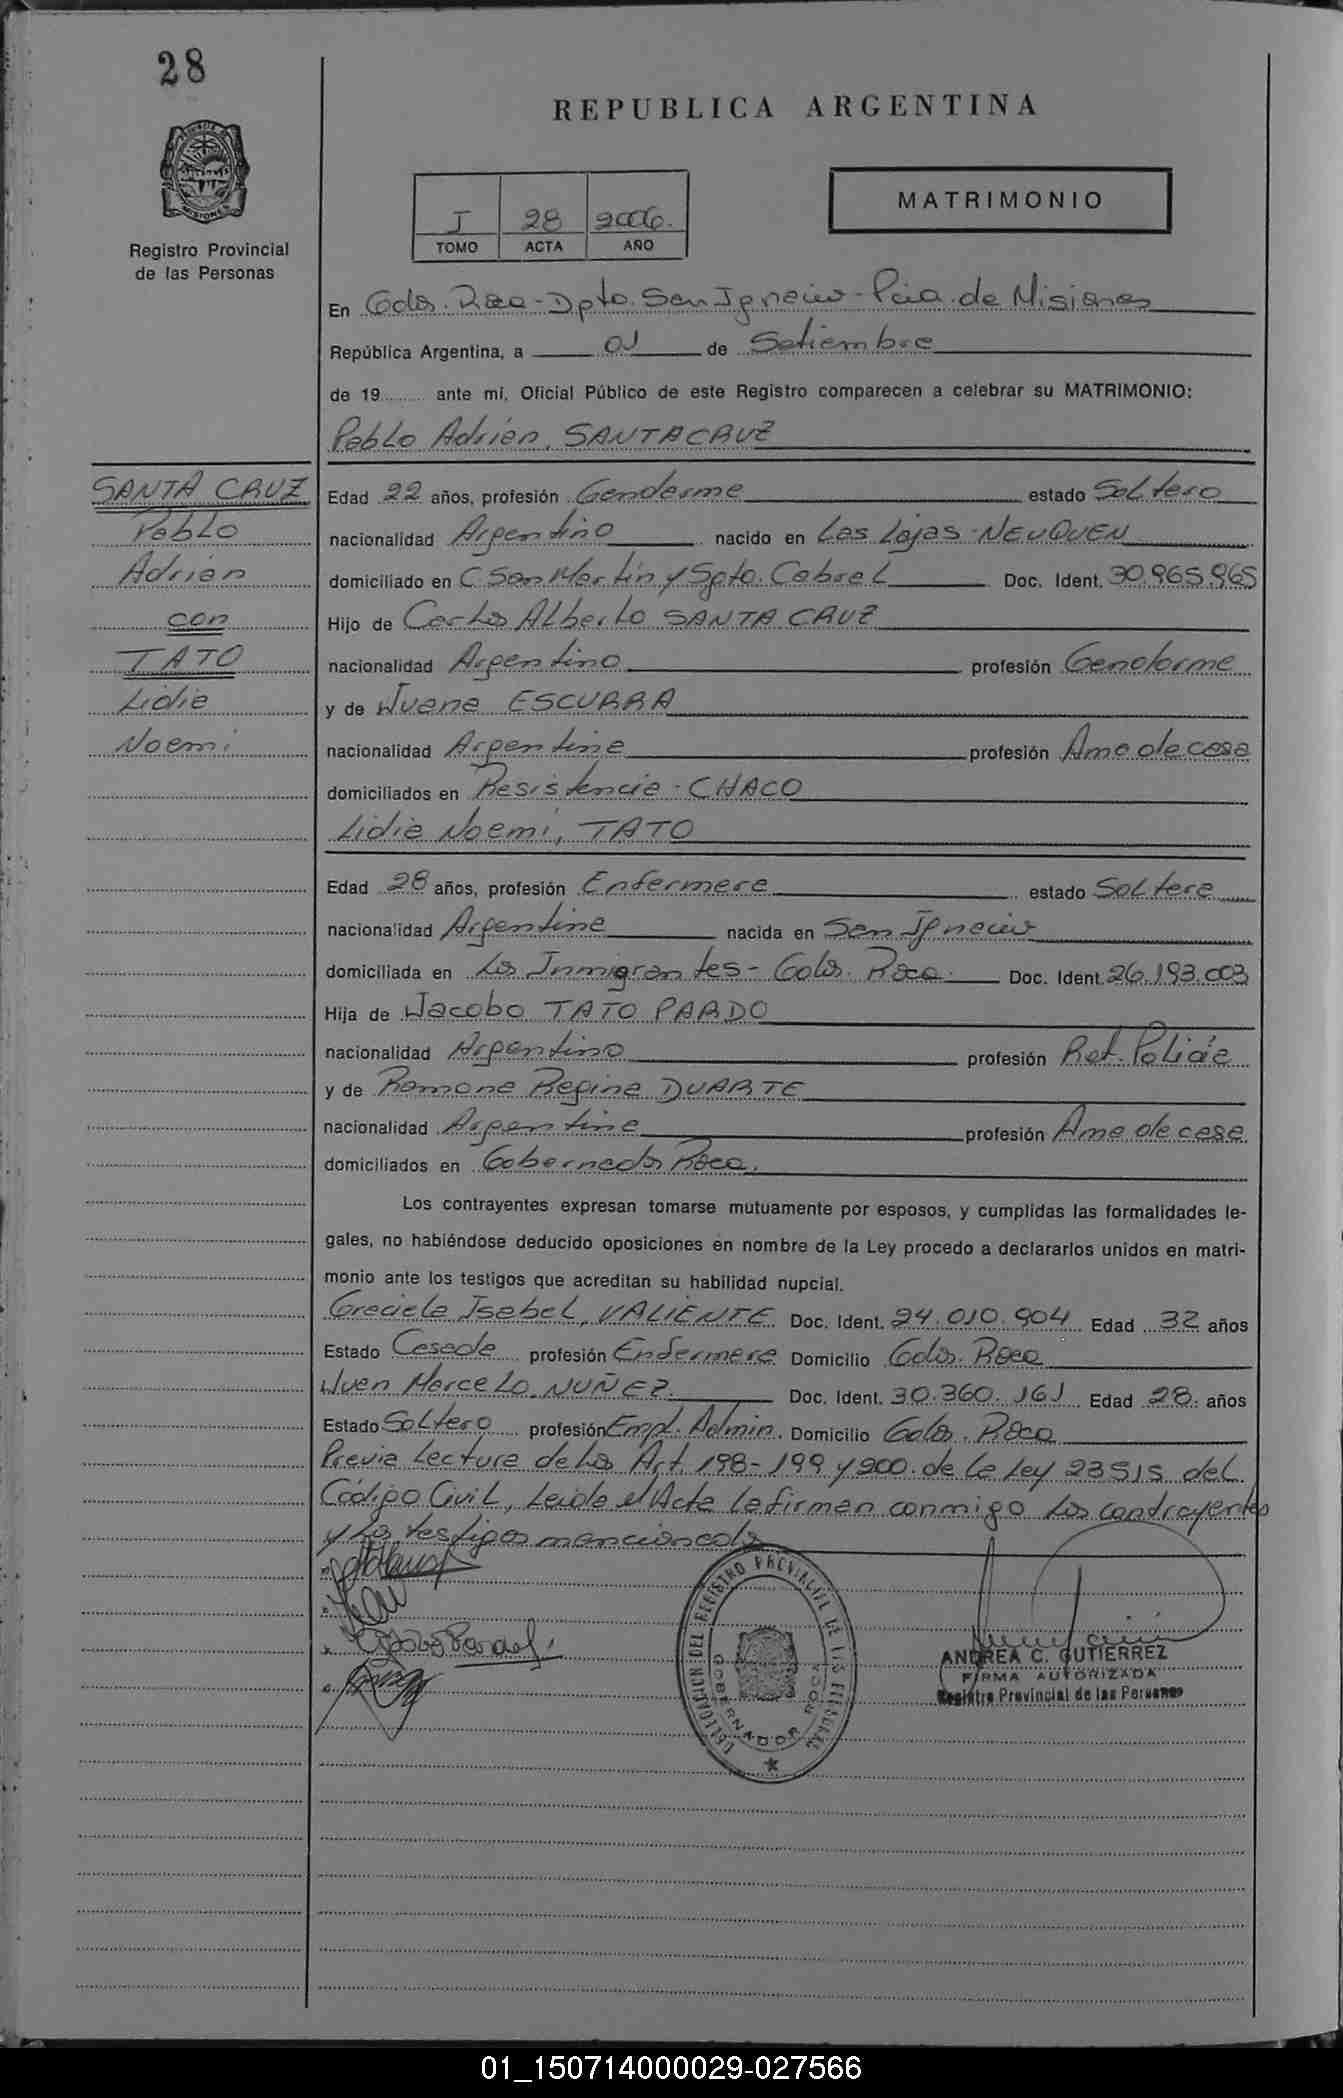 28
REPUBLICA ARGENTINA
MATRIMONIO
I 28 2006.
TOMO ACTA AÑO
MISIONES
Registro Provincial
de las Personas
En Gdor. Roca - Dpto. San Ignacio - Pcia. de Misiones
República Argentina, a 01 de Setiembre
de 19 ante mí, Oficial Público de este Registro comparecen a celebrar su MATRIMONIO:
Pablo Adrian, SANTACRUZ
SANTA CRUZ
Pablo
Adrian
con
TATO
Lidia
Noemi
Edad 22 años, profesión Gendarme estado Soltero
nacionalidad Argentino nacido en Las Lajas - NEUQUEN
domiciliado en C San Martin y Sgto. Cabral Doc. Ident. 30.965.965
Hijo de Carlos Alberto SANTA CRUZ
nacionalidad Argentino profesión Gendarme
y de Juana ESCURRA
nacionalidad Argentina profesión Ama de casa
domiciliados en Resistencia - CHACO
Lidia Noemi, TATO
Edad 28 años, profesión Enfermera estado Soltera
nacionalidad Argentina nacida en San Ignacio
domiciliada en Los Inmigrantes - Gdor. Roca. Doc. Ident. 26.193.003
Hija de Jacobo TATO PARDO
nacionalidad Argentino profesión Ret. Policía
y de Ramona Regina DUARTE
nacionalidad Argentina profesión Ama de casa
domiciliados en Gobernador Roca.
Los contrayentes expresan tomarse mutuamente por esposos, y cumplidas las formalidades le-
gales, no habiéndose deducido oposiciones en nombre de la Ley procedo a declararlos unidos en matri-
monio ante los testigos que acreditan su habilidad nupcial.
Graciela Isabel, VALIENTE Doc. Ident. 24.010.904 Edad 32 años
Estado Casada profesión Enfermera Domicilio Gdor. Roca
Juan Marcelo NUÑEZ Doc. Ident. 30.360.161 Edad 28 años
Estado Soltero profesión Empl. Admin. Domicilio Gdor. Roca
Previa lectura de los Art. 198-199 y 200 de la Ley 23515 del
Código Civil, leida el Acta la firman conmigo los contrayentes
y los testigos mencionados
DELEGACION DEL REGISTRO PROVINCIAL DE LAS PERSONAS
GOBERNADOR ROCA
ANDREA C. GUTIERREZ
FIRMA AUTORIZADA
Registro Provincial de las Personas
01_150714000029-027566